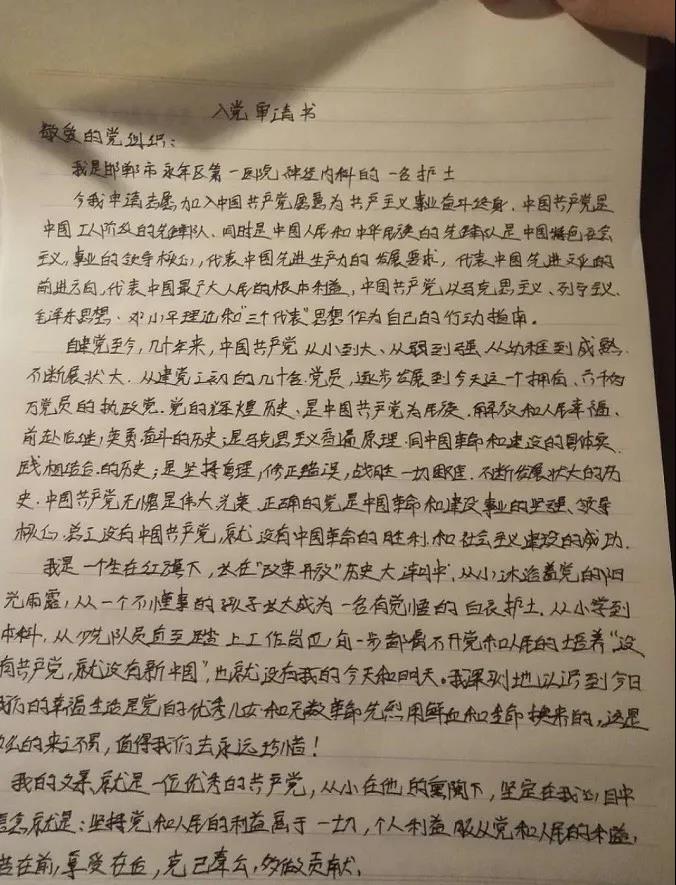 入党申请书
敬爱的党组织：
我是邯郸市永年区第一医院神经内科的一名护士
今我申请志愿加入中国共产党愿意为共产主义事业奋斗终身．中国共产党是
中国工人阶级的先锋队、同时是中国人民和中华民族的先锋队是中国特色社会
主义，事业的领导核心，代表中国先进生产力的发展要求，代表中国先进文化的
前进方向，代表中国最广大人民的根本利益，中国共产党以马克思主义、列宁主义、
毛泽东思想．邓小平理论和"三个代表"思想作为自己的行动指南。
自建党至今，几十年来，中国共产党从小到大、从弱到强、从幼稚到成熟．
不断展状大．从建党之初的几十名党员，逐步发展到今天这一个拥有、六千多
万党员的执政党．党的辉煌历史、是中国共产党为民族．解放和人民幸福、
前赴后继，英勇奋斗的历史；是马克思主义普遍原理．同中国革命和建设的具体实．
践相结合的历史；是坚持真理，修正错误，战胜一切困难．不断发展状大的历
史．中国共产党无愧是伟大光荣．正确的党是中国革命和建设事业的坚强、领导
核心．总之没有中国共产党，就没有中国革命的胜利．和社会主义建设的成功．
我是一个生在红旗下，长在"改革开放"历史大潮中，从小沐浴着党的阳
光雨露，从一个不懂事的孩子长大成为一名有觉悟的白衣护士．从小学到
本科，从少先队员直至踏上工作岗位，每一步都离不开党和人民的培养"没
有共产党，就没有新中国"，也就没有我的今天和明天。我深刻地认识到今日
我们的幸福生活是党的优秀儿女和无数革命先烈用鲜血和生命换来的，这是
么的来之不易，值得我们去永远珍惜！
我的父亲就是一位优秀的共产党，从小在他的熏陶下，坚定在我心目中
信念就是：坚持党和人民的利益高于一切，个人利益服从党和人民的利益，
苦在前，享受在后，克己奉公，多做贡献．